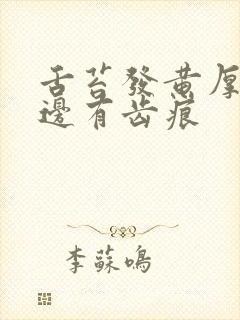 舌苔發黄厚
邊有齿痕
李蘇鳴